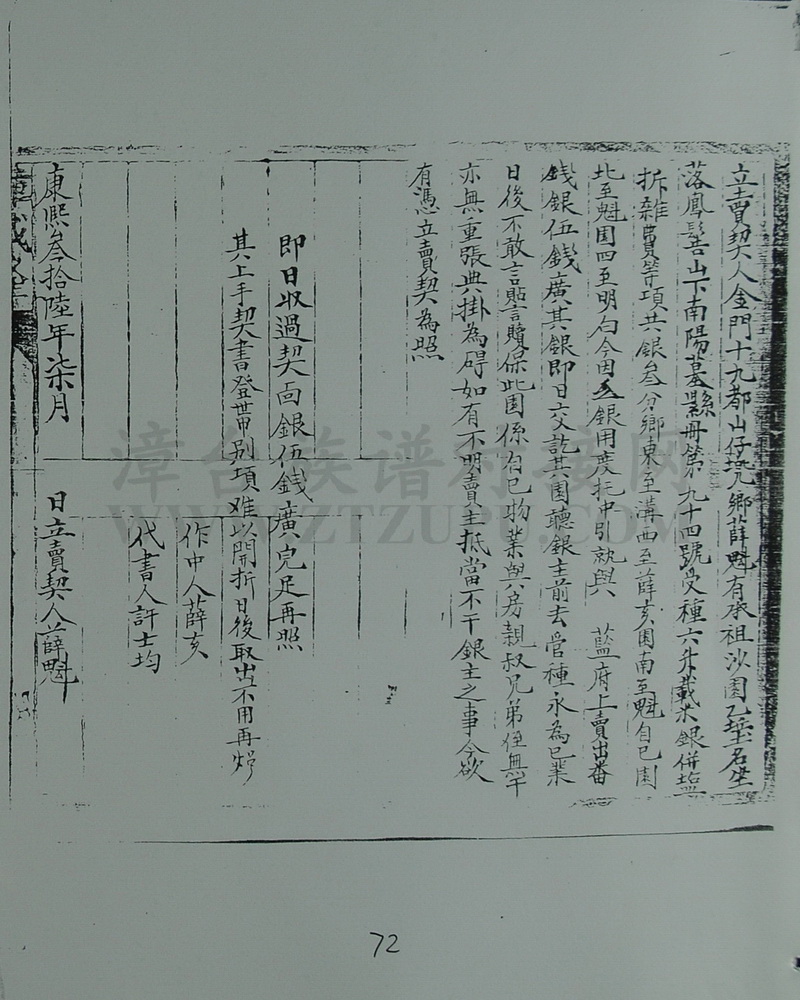 立賣契人金門十九都山仔兜鄉薛魁有承祖沙園乙坵名坐
落鳳髻山下南陽墓縣冊第九十四號受種六升載米銀併鹽
折雜費等項共銀叁分鄉東至溝西至薛亥園南至魁自己園
北至魁園四至明白今因乏銀用度托中引就與 藍府上賣出番
錢銀伍錢廣其銀即日交訖其園聽銀主前去管種永為己業
日後不敢言貼言贖保此園係自己物業與房親叔兄弟侄無干
亦無重張典掛為碍如有不明賣主抵當不干銀主之事今欲
有憑立賣契為照
即日收過契面銀伍錢廣完足再照
其上手契書登帶别項难以開折日後取出不用再炤
作中人薛亥
代書人許士均
康熙叁拾陸年柒月 日立賣契人薛魁
漳台族谱对接网
WWW.ZTZUPU.COM
72